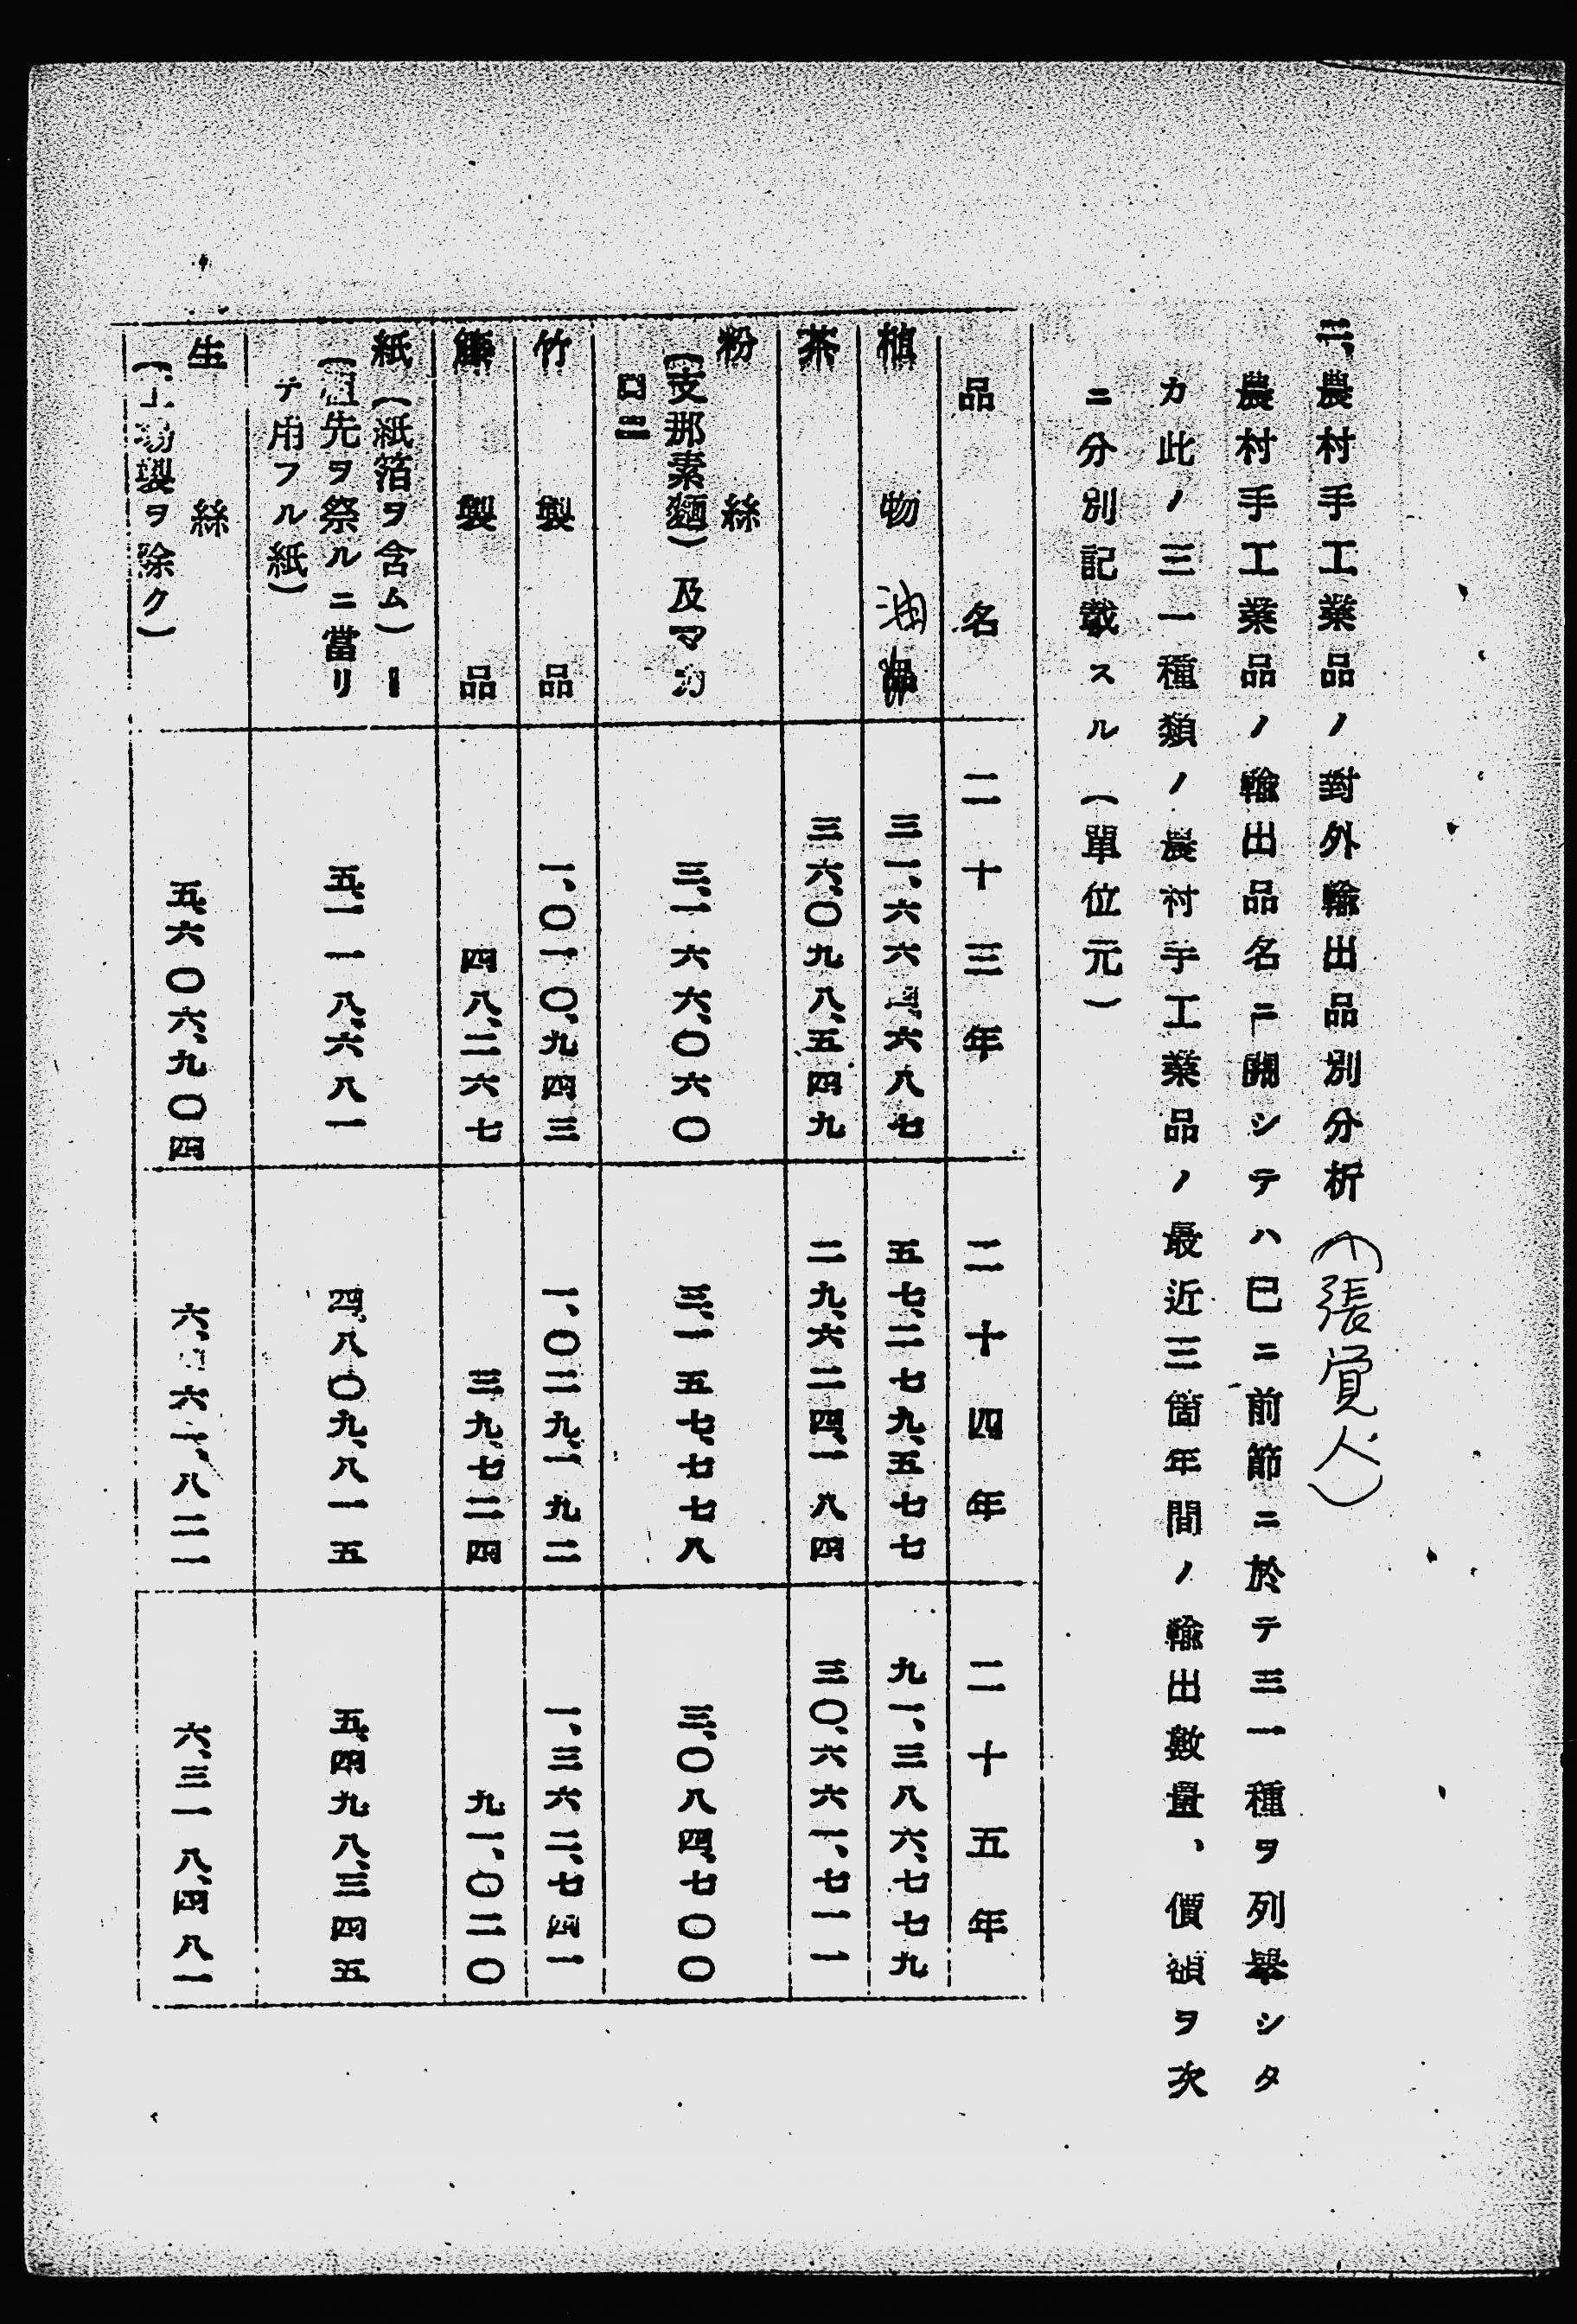 二、農村手工業品ノ對外輸出品別分析(張覚人)
農村手工業品ノ輸出品名ニ關シテハ已ニ前節ニ於テ三一種ヲ列擧シタ
カ此ノ三一種類ノ農村手工業品ノ最近三箇年間ノ輸出數量、價額ヲ次
ニ分別記載スル(單位元)
品名 二十三年 二十四年 二十五年
植物油 三一、六六 、六八七 五七、二七九、五七七 九一、三八六、七七九
茶 三六、〇九八、五四九 二九、六二四、一八四 三〇、六六一、七一一
粉絲
(支那素麵)及マカ
ロニ 三、一六六、〇六〇 三、一五七、七七八 三、〇八四、七〇〇
竹製品 一、〇一〇、九四三 一、〇二九、一九二 一、三六二、七四一
籐製品 四八、二六七 三九、七二四 九一、〇二〇
紙(紙箔ヲ含ム)ー
(祖先ヲ祭ルニ當リ
テ用フル紙) 五、一一八、六八一 四、八〇九、八一五 五、四九八、三四五
生絲
(工場製ヲ除ク) 五、六〇六、九〇四 六、 六一、八二一 六、三一八、四八一